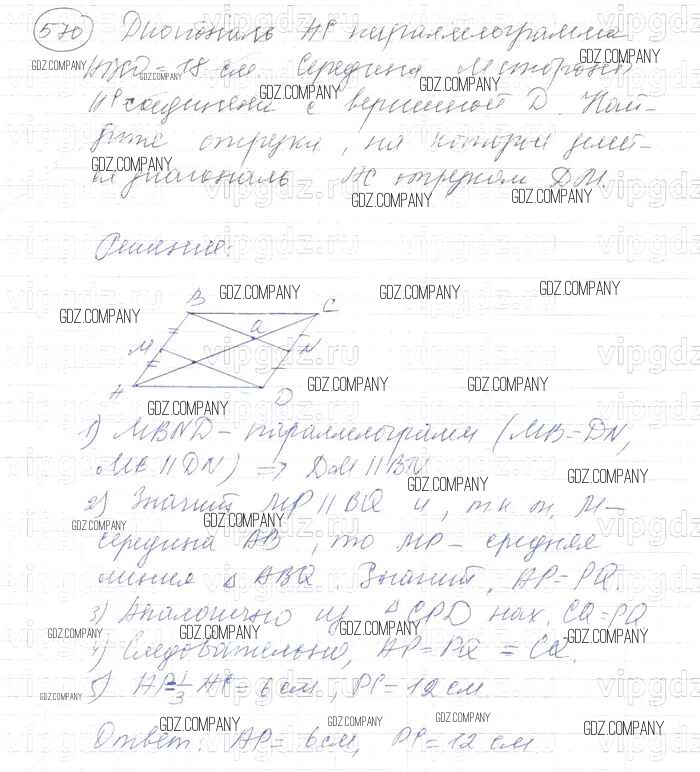 570 Диагональ АС параллелограмма
АВСD = 18 см. Середина М стороны
АВ соединена с вершиной D. Най-
дите отрезки, на которые делит-
ся диагональ АС отрезком DM.
Решение:
B C
Q
M N
A D
1) MBND - параллелограмм (MB = DN,
MB || DN) => DM || BN
2) Значит MP || BQ и, т.к. т. М -
середина АВ, то MP - средняя
линия △ ABQ. Значит, AP = PQ.
3) Аналогично из △ CPD нах. CQ = PQ
4) Следовательно, AP = PQ = CQ.
5) AP = 1/3 AC = 6 см, PC = 12 см
Ответ: AP = 6 см, PC = 12 см
GDZ.COMPANY
vipgdz.ru